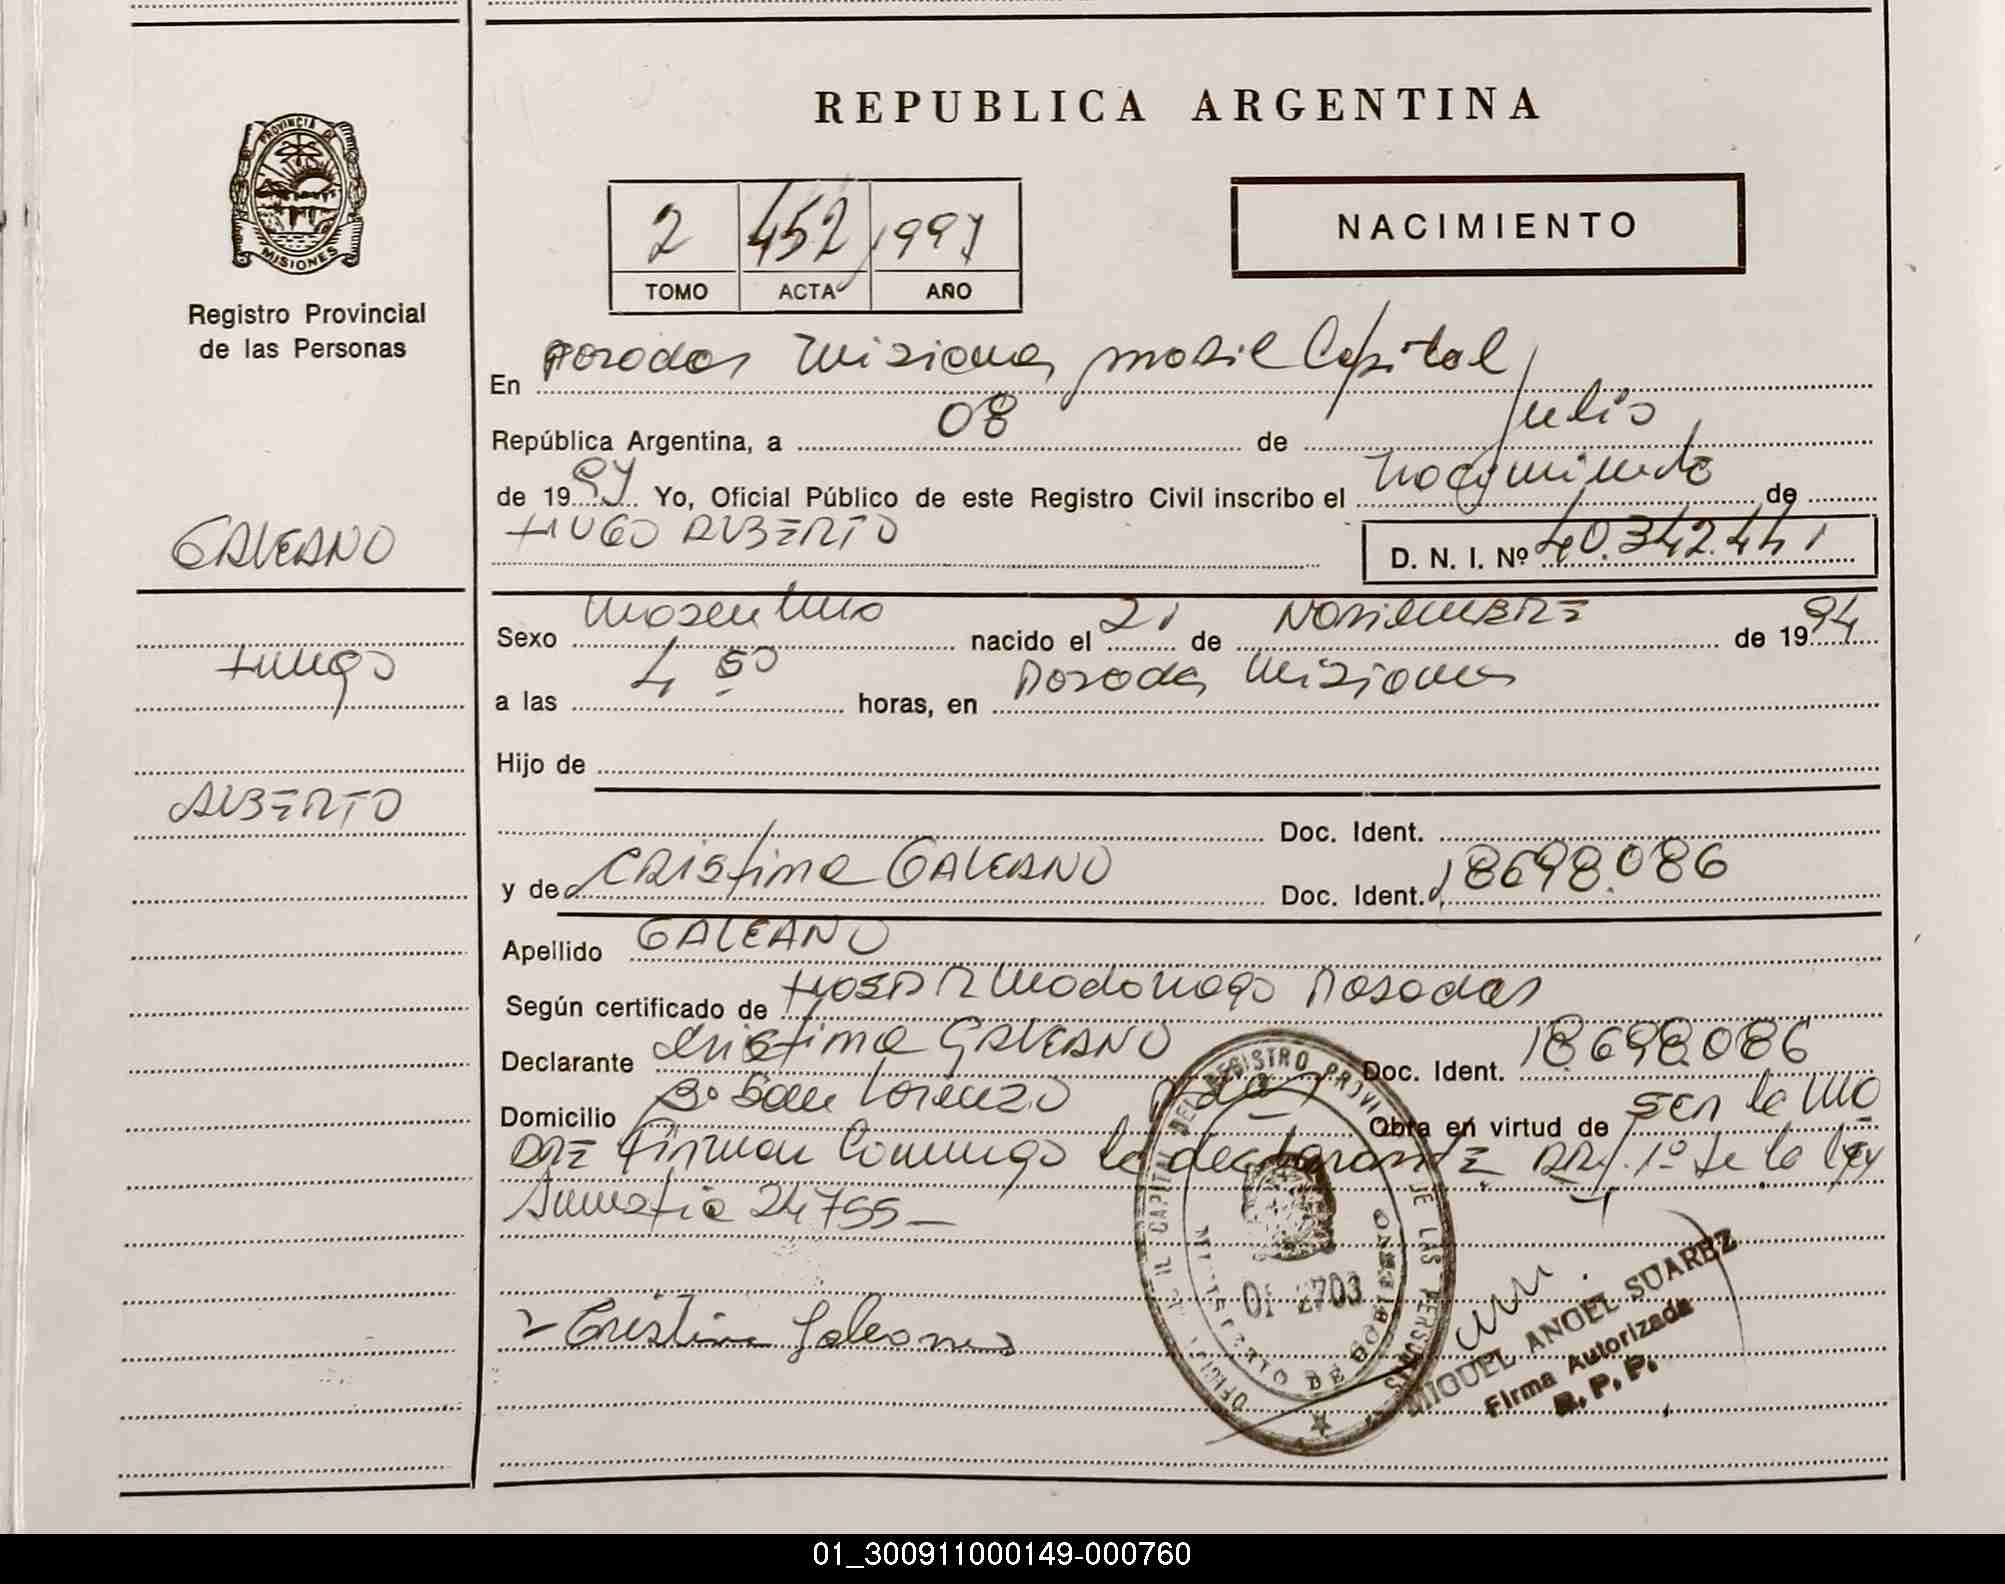 REPUBLICA ARGENTINA
PROVINCIA DE
MISIONES
Registro Provincial
de las Personas
2 452 1997
TOMO ACTA AÑO
NACIMIENTO
En Posadas Misiones movil Capital
República Argentina, a 08 de Julio
de 1997 Yo, Oficial Público de este Registro Civil inscribo el nacimiento de
HUGO ALBERTO D. N. I. Nº 40.342.441
GALEANO
Hugo
ALBERTO
Sexo masculino nacido el 21 de NOVIEMBRE de 1994
a las 4 horas, en Posadas Misiones
Hijo de
Doc. Ident.
y de CRistina GALEANO Doc. Ident. 18698.086
Apellido GALEANO
Según certificado de Hosp R Madariaga Posadas
Declarante Cristina GALEANO Doc. Ident. 18698086
Domicilio Bº San Lorenzo Obra en virtud de ser la ma
DRE Firman Conmigo la declarante ART. 1º de la ley
Amnistia 24755
Cristina Galeano
REGISTRO PROVI DE LAS PERSONAS
CAPITAL
MINISTERIO DE GOBIERNO
MIGUEL ANGEL SUAREZ
Firma Autorizada
R. P. P.
01_300911000149-000760